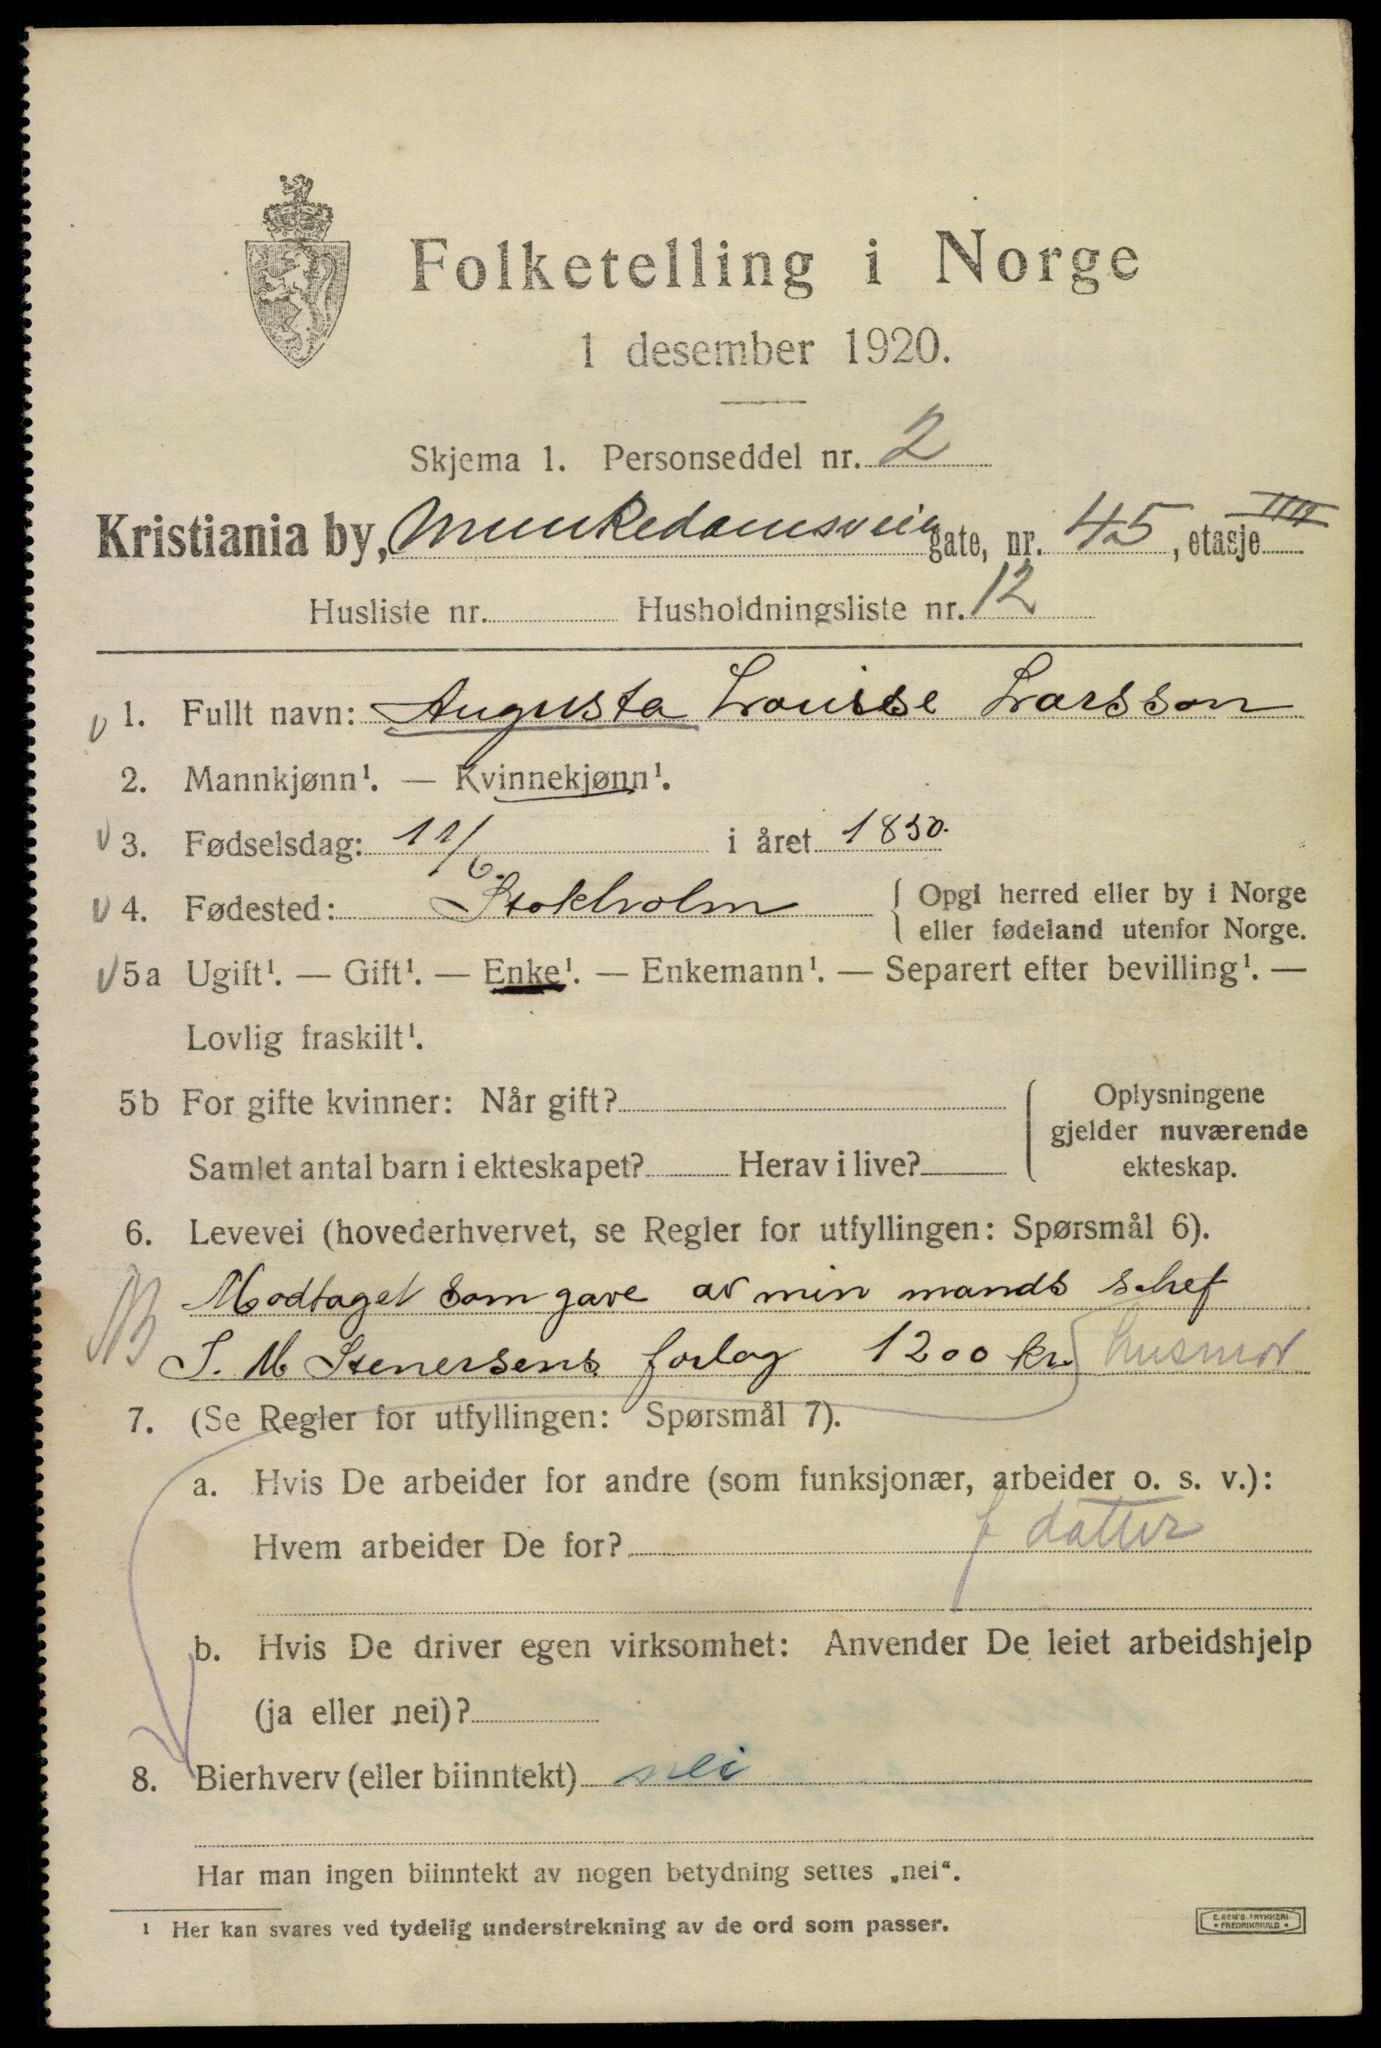 Folketelling i Norge
1 desember 1920.
Skjema 1. Personseddel nr. 2
Kristiania by, Munkedamsveien gate, nr. 45, etasje IIII
Husliste nr. Husholdningsliste nr. 12
v 1. Fullt navn: Augusta Louise Larsson
2. Mannkjønn¹. — Kvinnekjønn¹.
v 3. Fødselsdag: 11/6. i året 1850.
v 4. Fødested: Stokholm { Opgi herred eller by i Norge
eller fødeland utenfor Norge.
v 5a Ugift¹. — Gift¹. — Enke¹. — Enkemann¹. — Separert efter bevilling¹. —
Lovlig fraskilt¹.
5b For gifte kvinner: Når gift?
Samlet antal barn i ekteskapet? Herav i live?
Oplysningene
gjelder nuværende
ekteskap.
6. Levevei (hovederhvervet, se Regler for utfyllingen: Spørsmål 6).
Modtaget som gave av min mands schef
J. M Stenersens forlag 1200 kr. husmor
7. (Se Regler for utfyllingen: Spørsmål 7).
a. Hvis De arbeider for andre (som funksjonær, arbeider o. s. v.):
Hvem arbeider De for? f datter
b. Hvis De driver egen virksomhet: Anvender De leiet arbeidshjelp
(ja eller nei)?
8. Bierhverv (eller biinntekt) nei
Har man ingen biinntekt av nogen betydning settes „nei“.
¹ Her kan svares ved tydelig understrekning av de ord som passer.